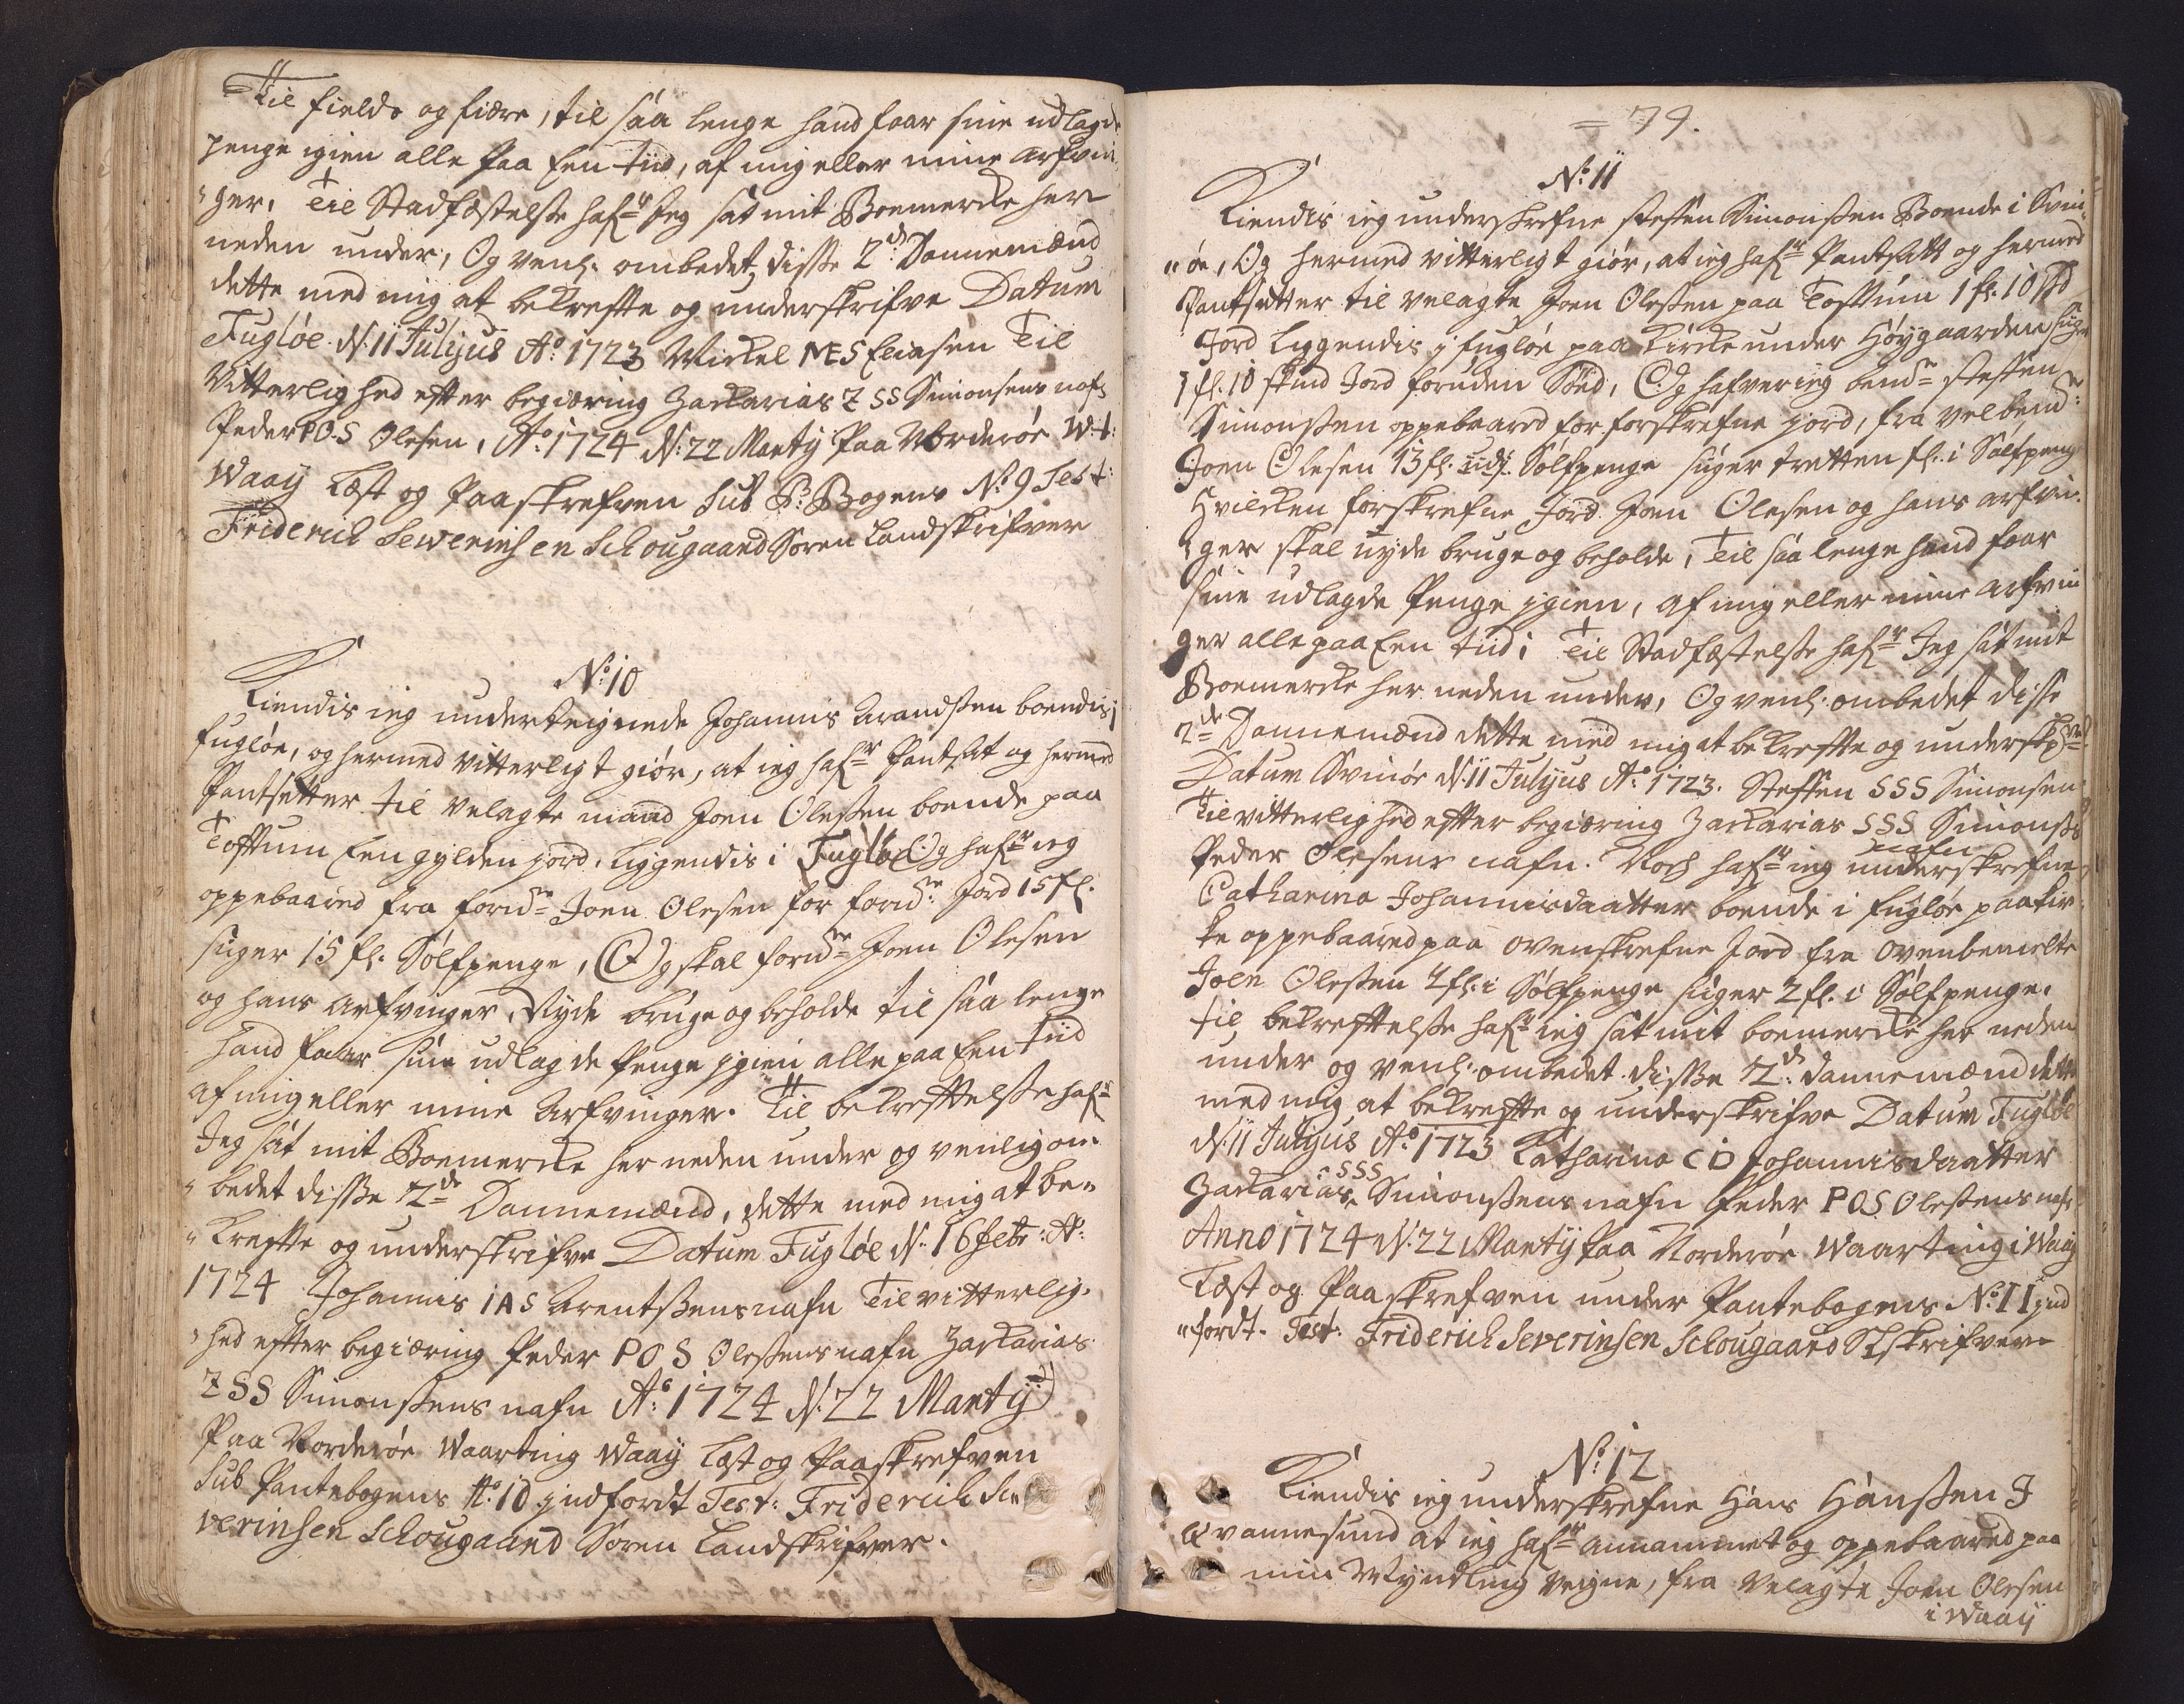 Til fields og fiære, til saa lenge hand faar sine udlagde
penge igien alle Paa Een tiid, af mig eller mine arfvin
ger. Til Stadfæstelsse hafr Jeg sat mit Boemercke her
neden under, Og venl. ombedet disse 2de Dannemænd
dette med mig at bekreffte og underskrifve Datum
Fugløe d. 11 Julyus Ao 1723 Mickel MES Eliasen Til
Vitterlighed effter begiæring Zackarias ZSS Simonsens nafn
Peder POS Olesen, Ao 1724 d. 22 Marty Paa Norderøe W-t:
Waay Læst og Paaskrefven Sub P: Bogens No 9 Test:
Friderich Sewerinsen Schougaard Soren Landskrifver
No 10
Kiendis ieg underteignede Johannis Arandssen boendis i
fugløe, og hermed vitterligt giør, at ieg hafr Pantsat og hermed
Pantsetter til velagte mand Joen Olessen boende paa
Tofftum Een gylden jord, liggendis i Fugløe Og hafr ieg
oppebaared fra forne Joen Olesen for forne Jord 15 fl.
siger 15 fl. Sølfpenge, Og skal forne Joen Olesen
og hans Arfvinger, Nyde bruge og beholde til saa lenge
hand faar sine udlagde Penge jgien alle paa Een tiid
af mig eller mine Arfvinger. Til bekrefftelsse hafr
Jeg sat mit Boemercke her neden under og venlig om
bedet disse 2de Dannemænd, dette med mig at be-
kreffte og underskrifve Datum Fugløe d. 16 Febr: Ao
1724 Johannis IAS Arentssens nafn Til vitterlig-
hed effter begiæring Peder POS Olessens nafn Zackarias
ZSS Simonssens nafn Ao 1724 d. 22 Marty
Paa Norderøe Waarting Waay Læst og Paaskrefven
Sub Pantebogens No 10 jndfordt Test: Friderich Se-
verinsen Schougaard Soren Landskrifver.
= 79.
No 11
Kiendis ieg underskrefne Steffen Simonssen Boende i Svin-
øe, Og hermed vitterligt giør, at ieg hafr Pantsatt og hermed
Pantsetter til velagte Joen Olessen paa Tofftum 1 fl. 10 skd
Jord liggendis j fugløe paa Kircke under Høygaarden siger
1 fl. 10 skind Jord foruden Sød, Og hafver ieg bemte Steffen
Simonssen oppebaared for forskrefne jord, fra velbemte
Joen Olesen 13 fl. udj Sølfpenge siger tretten fl. i Sølfpeng
Hvilcken forskrefne Jord Joen Olesen og hans arfvin
ger skal nyde bruge og beholde, Til saa lenge hand faar
sine udlagde Penge jgien, af mig eller mine arfvin
ger alle paa Een tiid; Til Stadfæstelsse hafr Jeg sat mit
Boemercke her neden under, Og venl. ombedet disse
2de Dannemænd dette med mig at bekreffte og underskrifve
Datum Svinøe d. 11 Julyus Ao 1723. Steffen SSS Simonsen
Til vitterlighed effter begiæring Zackarias SSS Simonss
nafn
Peder Olesens nafn. Noch hafr ieg underskrefne
Catharina Johannisdaatter boende i fugløe paa kir
ke oppebaared paa ovenskrefne Jord fra ovenbemelte
Joen Olessen 2 fl. i Sølfpenge siger 2 fl. i Sølfpenge.
til bekrefftelsse hafr ieg sat mit boemercke her neden
under og venl. ombedet disse 2de dannemænd dette
med mig at bekreffte og underskrifve Datum Fugløe
d. 11 Julyus Ao 1723 Katharina CD Johannisdaatter
Zackarias SSS Simonssens nafn Peder POS Olessens nafn
Anno 1724 d. 22 Marty Paa Norderøe Waarting i Waay
Læst og Paaskrefven under Pantebogens No 11 jnd
fordt. Test: Friderich Severinsen Schougaard SLskrifver
No 12
Kiendis ieg underskrefne Hans Hanssen J
Qvannesund at ieg hafr annammet og oppebaared paa
min Myndling veigne, fra velagte Joen Olesen
i Waay